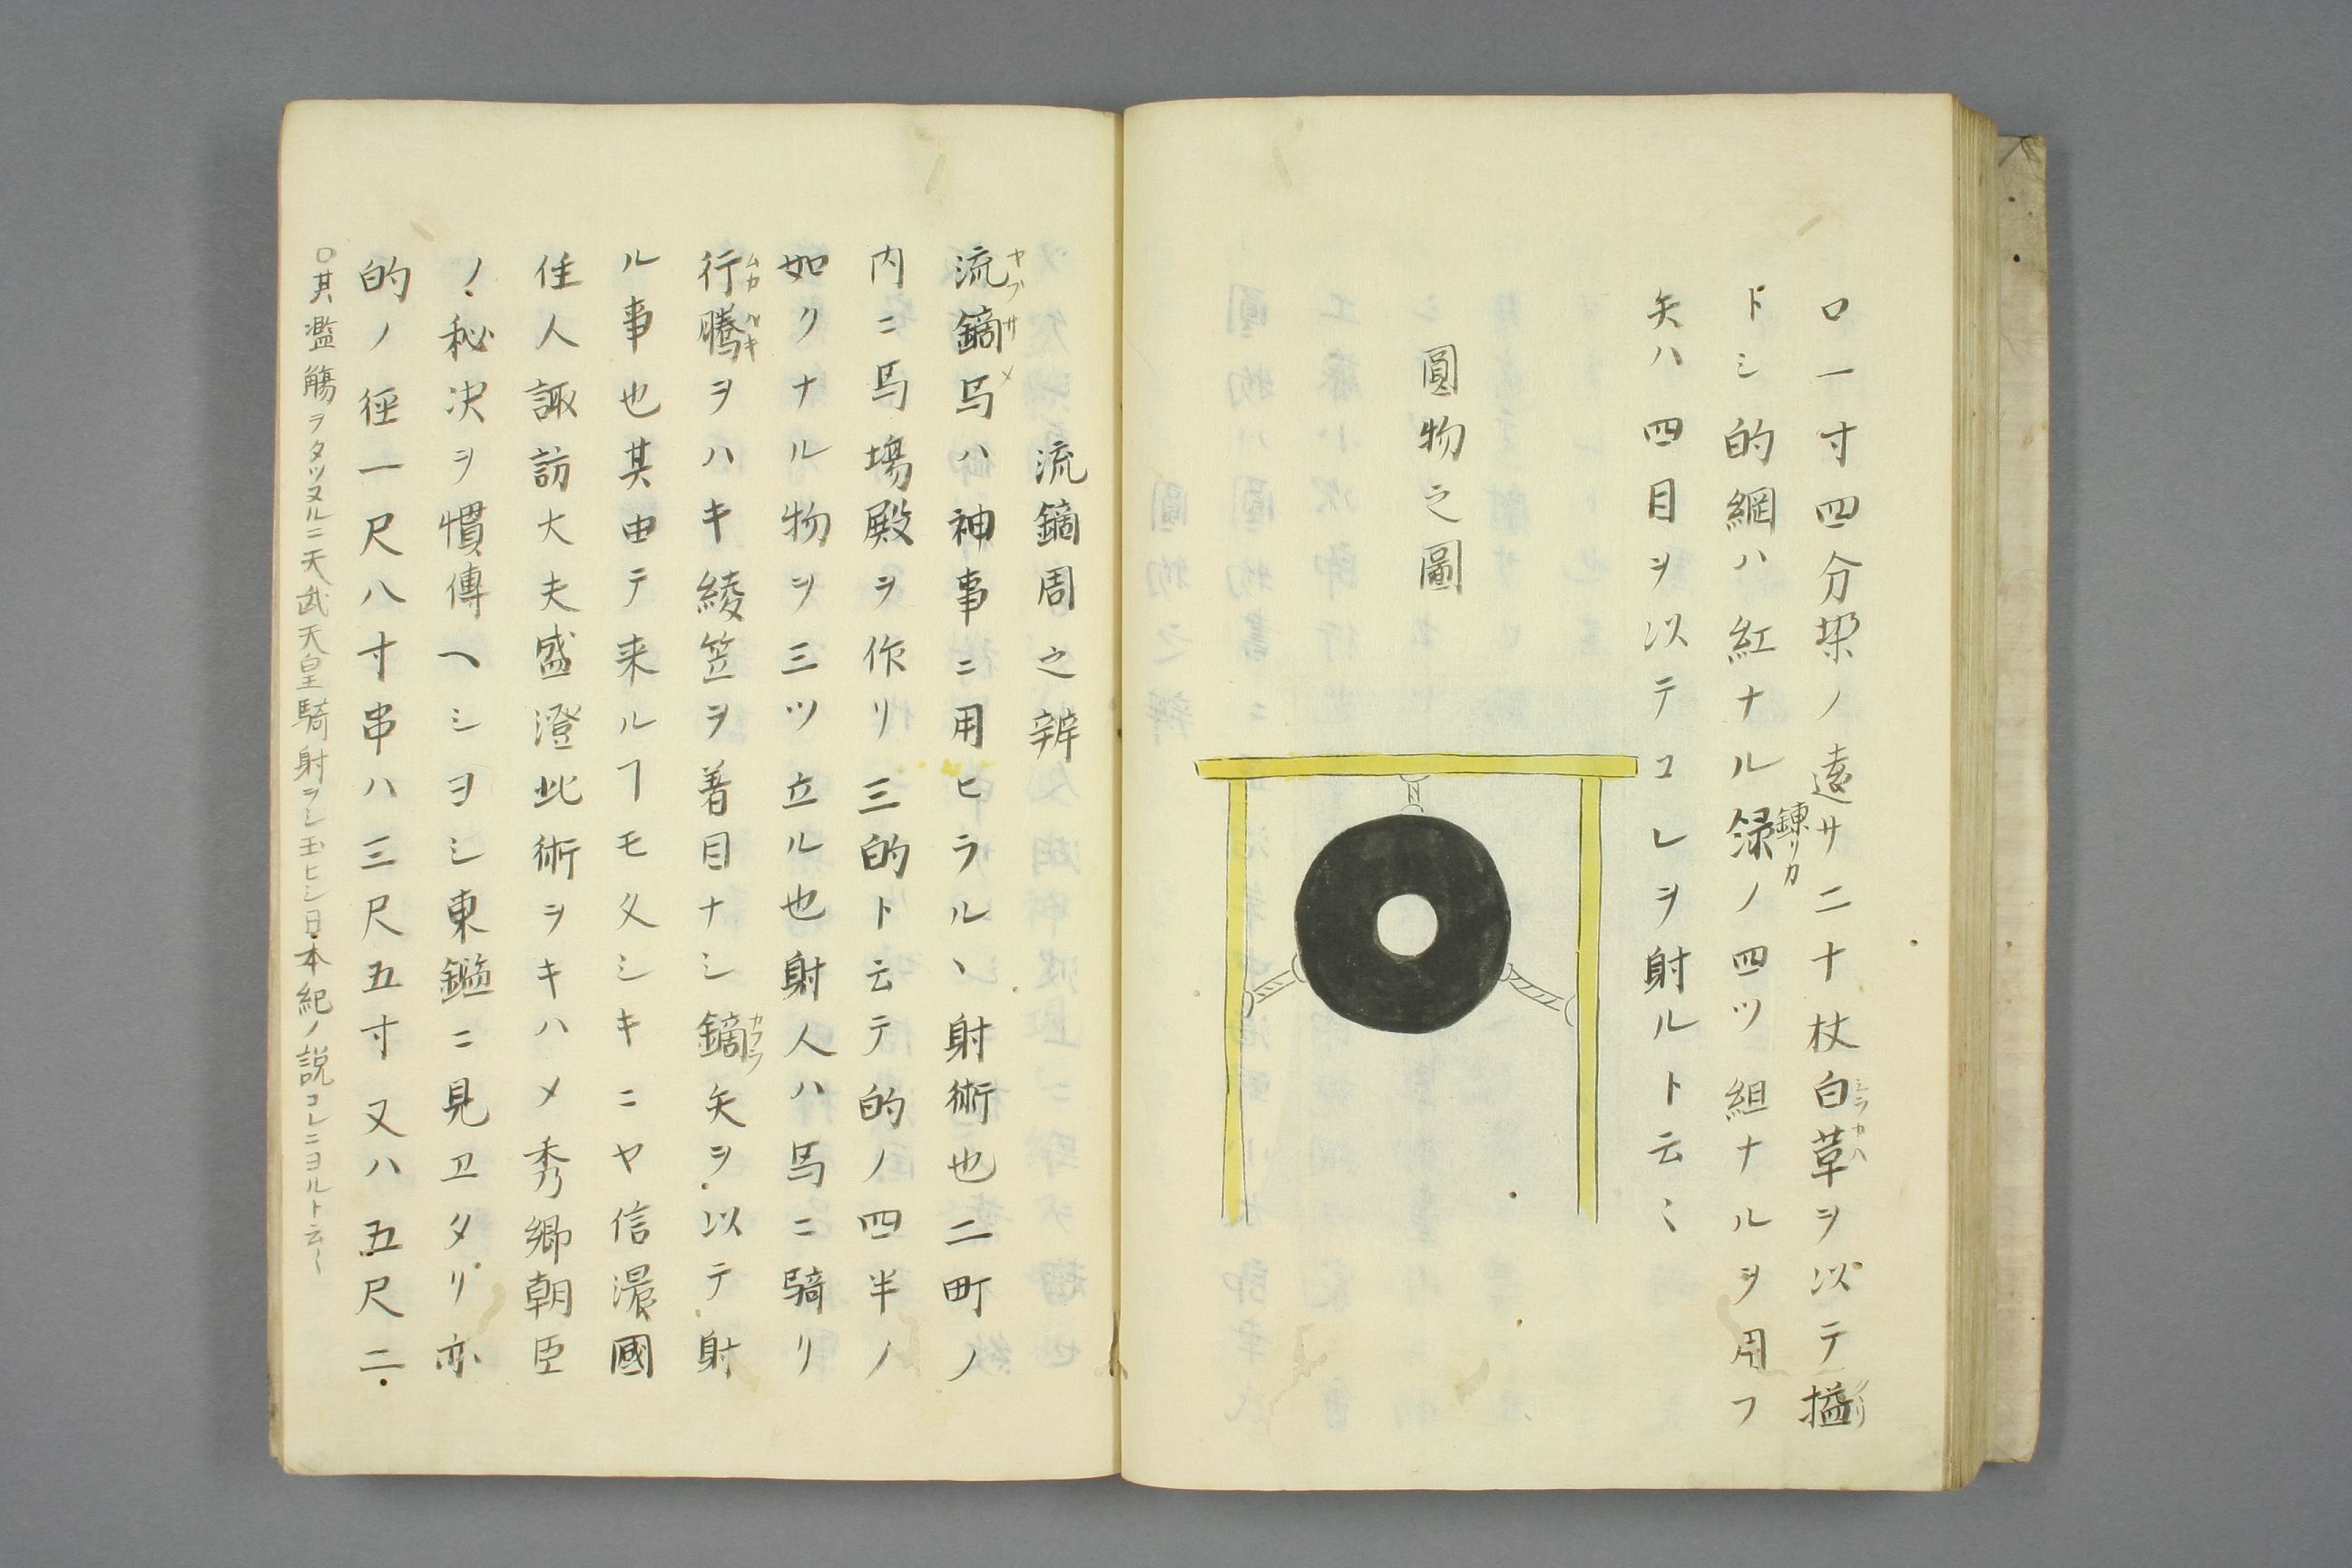 口一寸四分架ノ遠サ二十杖白草ヲ以テ搤
シラカハ
クヽリ
トシ的網ハ紅ナル緑ノ四ツ組ナルヲ用フ
錬リカ
矢ハ四目ヲ以テコレヲ射ルト云〻
圓物之圖
流鏑周之辨
流鏑馬ハ神事ニ用ヒラルヽ射術也二町ノ
ヤブサメ
内ニ馬場殿ヲ作リ三的ト云テ的ノ四半ノ
如クナル物ヲ三ツ立ル也射人ハ馬ニ騎リ
行騰ヲハキ綾笠ヲ著目ナシ鏑矢ヲ以テ射
ムカハキ
カブラ
ル事也其由テ来ルヿモ久シキニヤ信濃國
住人諏訪大夫盛澄此術ヲキハメ秀郷朝臣
ノ秘决ヲ慣傳ヘシヨシ東鑑ニ見ヱタリ亦
的ノ徑一尺八寸串ハ三尺五寸又ハ五尺二
○其濫觴ヲタツヌルニ天武天皇騎射ヲシ玉ヒシ日本紀ノ説コレニヨルト云〻